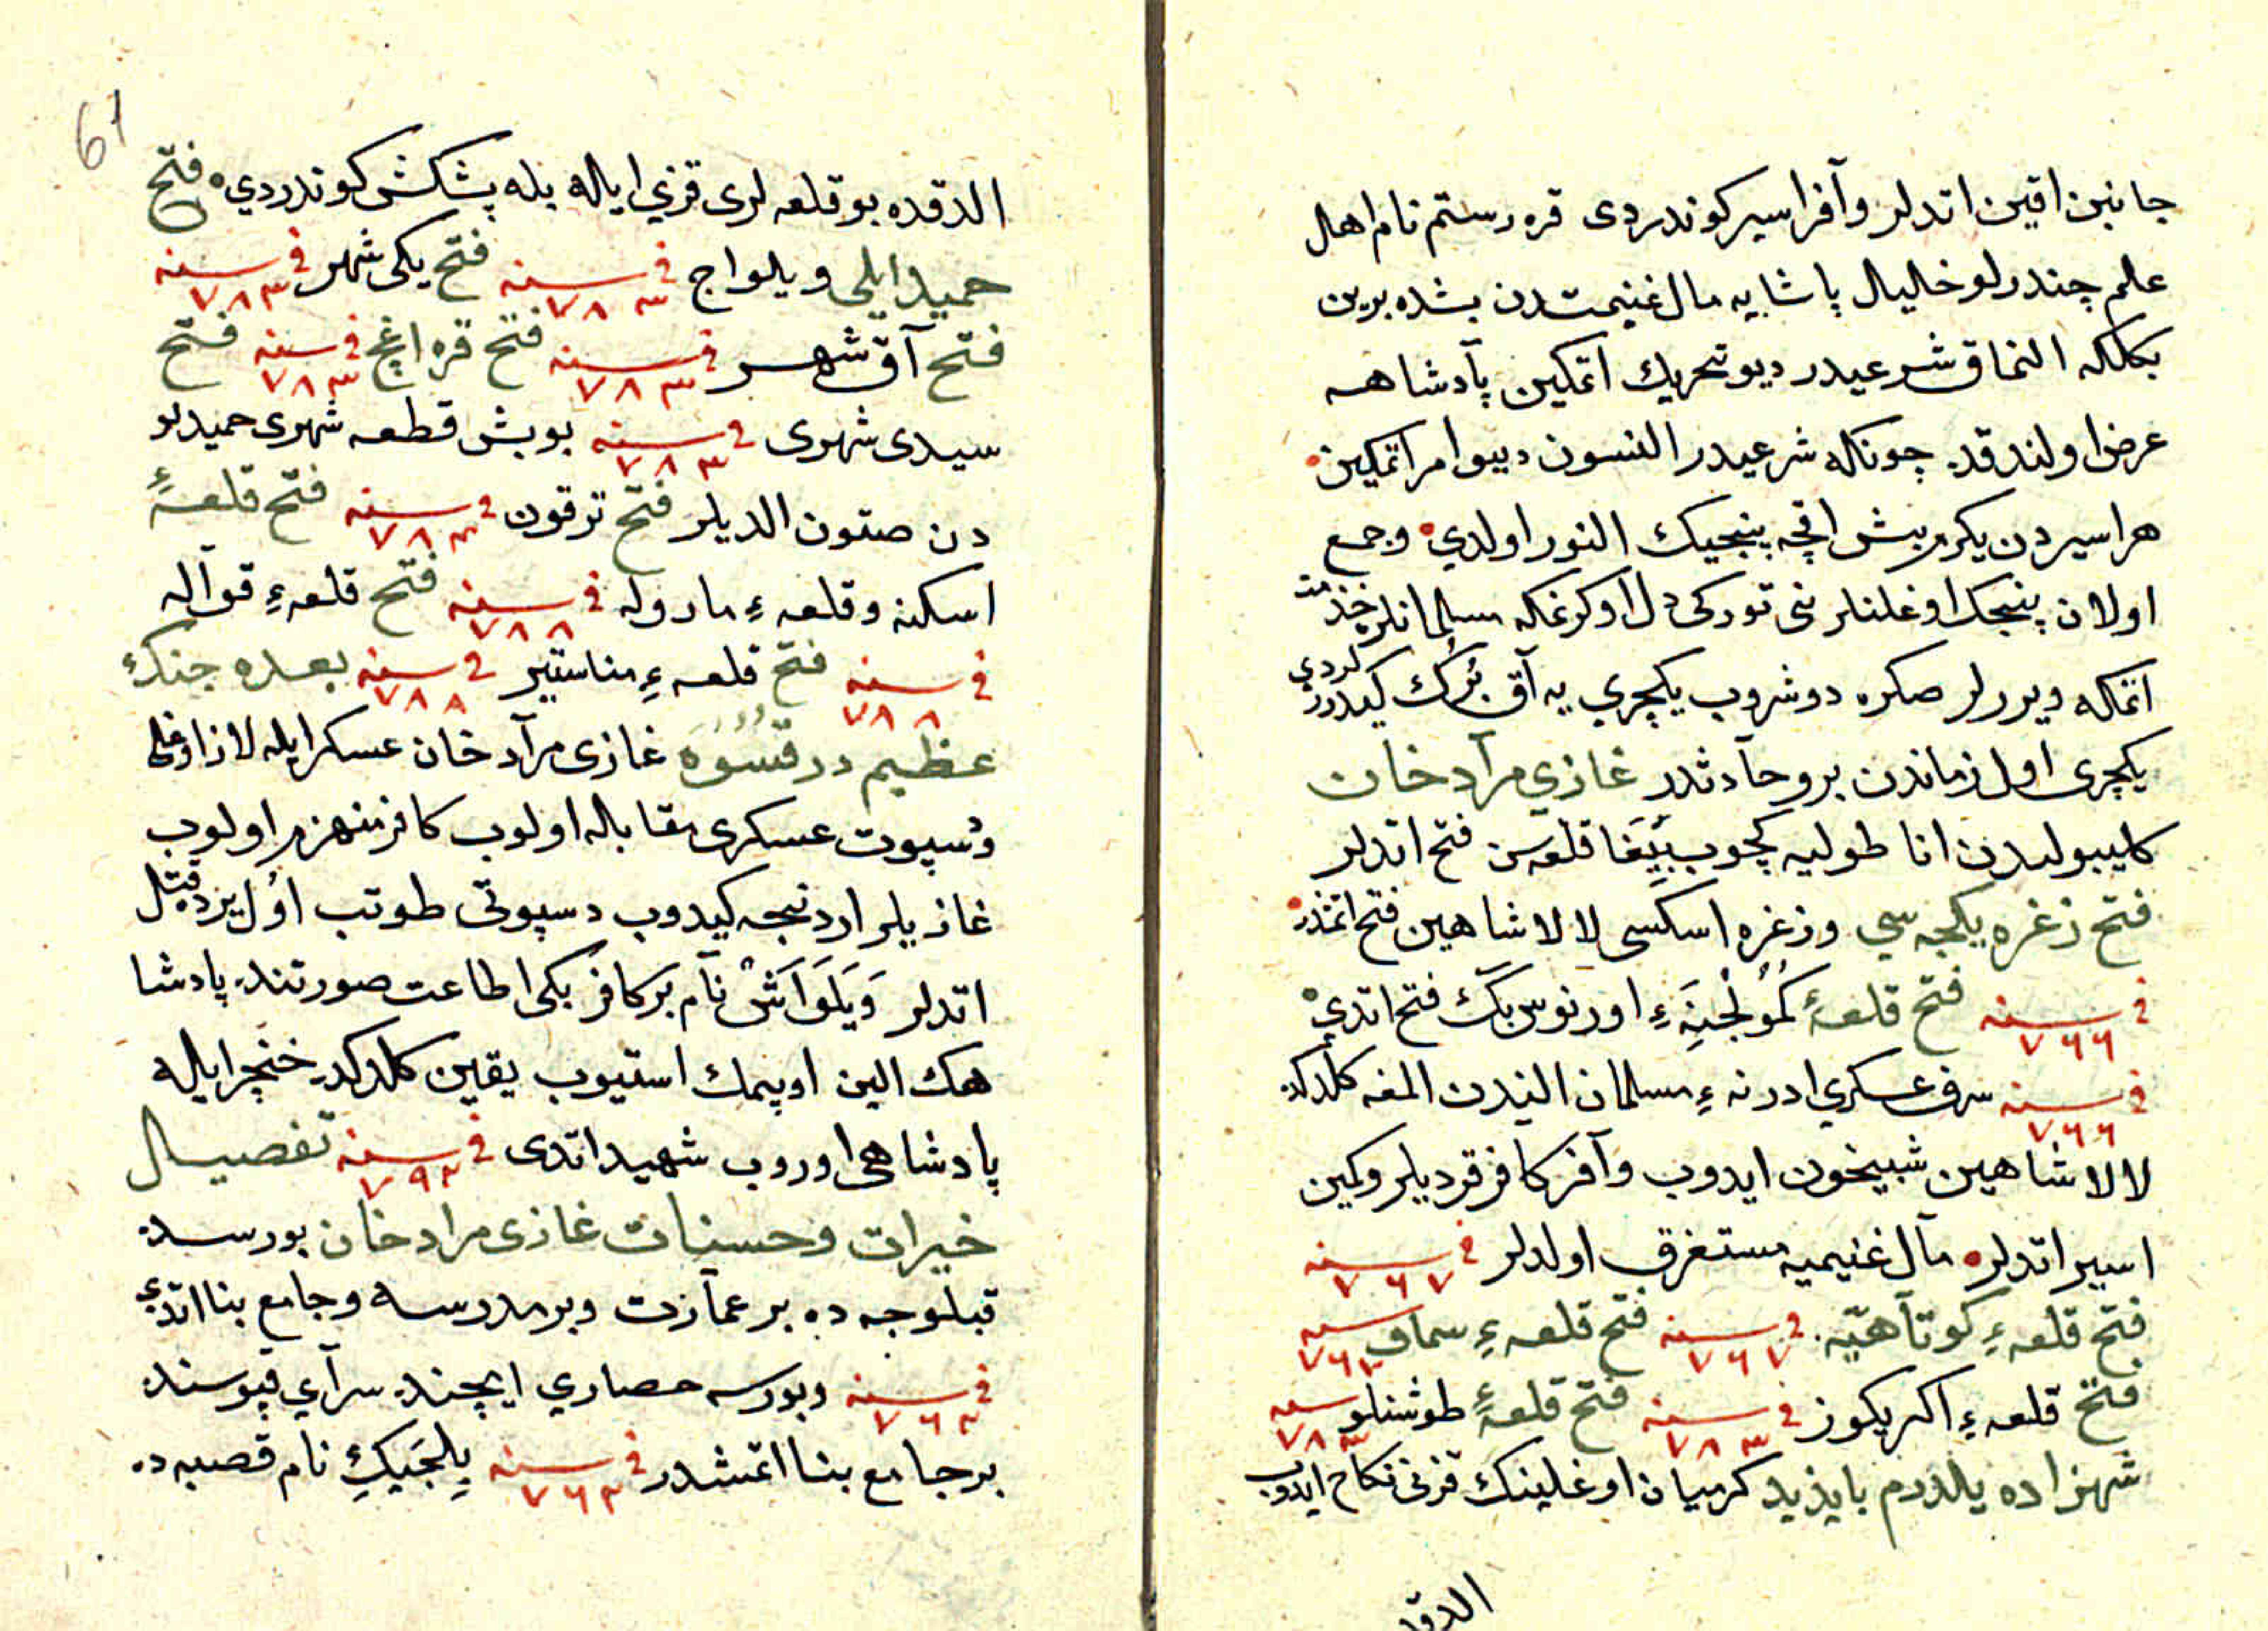 جانبن اقين اتدلر وآفرا سير كوندردى قره رستم نام اهل
علم چندرلو خاليال پاشا يه مال غنيمتدن بشده برين
بكلكه النماق شرعيدر ديو تحريك اتمكين پآدشاهه
عرض اولندقده چونكه شرعيدر النسون ديبو امر اتمكين
هر اسيردن يكرم بيش اقچه پنجيك النور اولدي وجمع
اولان پنجك اوغلنلر نى توركى دل اوكرنمكه مسلمانلر خذمت
اتمكه ويررلر صكره دوشروب يكچري يه آق برك كيدردلردي
يكچرى اول زماندن برو حآدثدر غازي مرآد خان
كليبوليدن انا طوليه كچوب بيغا قلعه سن فتح اتدلر
فتح زغره يكجه سي وزغره اسكسى لالا شاهين فتح اتمشدر
فى سنه ٧٦٦ فتح قلعۀ كمولجنه ء اورنوس بك فتح اتدي
فى سنه ٧٦٦ سرف عسكري ادرنه ء مسلمان الندن المغه كلدكده
لالا شاهين شبيخون ايدوب وآفر كافر قرديلر وكمين
اسير اتدلر مآل غنيميه مستغرق اولدلر فى سنه ٧٦٧
فتح قلعه ء كوتآهيّه فى سنه ٧٦٧ فتح قلعه ء سماف سنه ٧٦٣
فتح قلعه ء اكريكوز فى سنه ٧٨٣ فتح قلعۀ طوشنلو سنه ٧٨٣
شهزاده يلدرم بايذيد كرميان اوغلينك قزنى نكاح ايدوب
الدقده
61
الدقده بو قلعه لرى قزي ايله بله پشكش كوندردي فتح
حميد ايلى ويلواج فى سنه ٧٨٣ فتح يكى شهر فى سنه ٧٨٣
فتح آق شهر فى سنه ٧٨٣ فتح قره اغچ فى سنه ٧٨٣ فتح
سيدى شهرى فى سنه ٧٨٣ بو بش قطعه شهرى حميدلو
دن صتون الديلر فتح ترقون فى سنه ٧٨٣ فتح قلعۀ
اسكنه وقلعه ء ماروله فى سنه ٧٨٨ فتح قلعه ء قوآله
فى سنه ٧٨٨ فتح قلعه ء مناستير فى سنه ٧٨٨ بعده جنك
عظيم در قسوه غازى مرآد خان عسكر ايله لاز اوغلى
دسپوت عسكرى مقابله اولوب كافر منهزم اولوب
غازيلر اردنجه كيدوب دسپوتى طوتب اول يرده قتل
اتدلر ويلواش نآم بر كافر بكى اطاعت صورتنده پادشا
هك الين اوپمك استيوب يقين كلدكده خنچر ايله
پادشاهى اوروب شهيد اتدى فى سنه ٧٩٢ تفصيل
خيرات وحسنات غازى مراد خان بورسه ده
قبلوجه ده بر عمآرت وبر مدرسه وجامع بنا اتدي
فى سنه ٧٦٣ وبورسه حصاري ايچنده سرآي قپوسنده
بر جامع بنا اتمشدر فى سنه ٧٦٣ بيلجيك نام قصبه ده